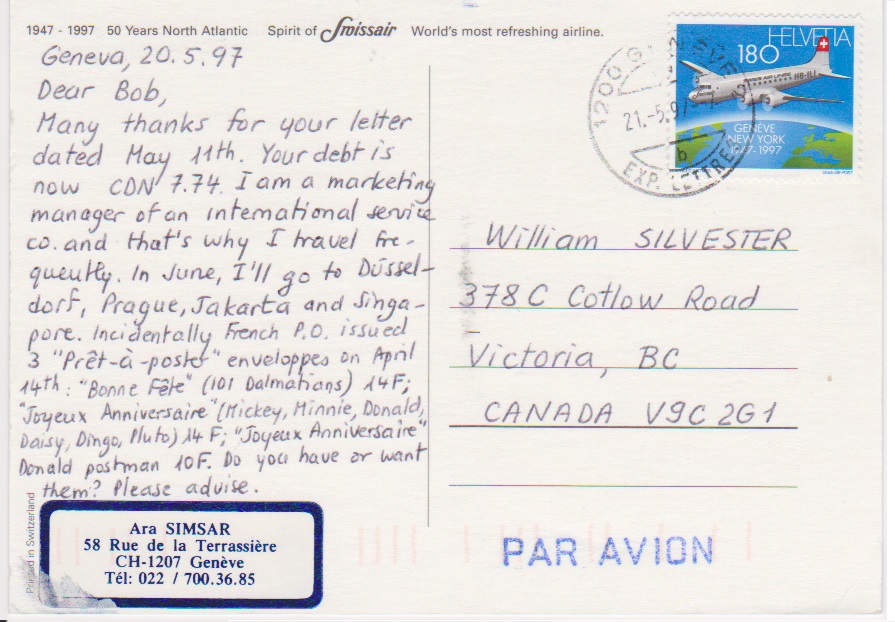 1947 - 1997 50 Years North Atlantic Spirit of Swissair World's most refreshing airline.
Geneva, 20.5.97
Dear Bob,
Many thanks for your letter
dated May 11th. Your debt is
now CDN 7.74. I am a marketing
manager of an international service
co. and that's why I travel fre-
quently. In June, I'll go to Düssel-
dorf, Prague, Jakarta and Singa-
pore. Incidentally French P.O. issued
3 "Prêt-à-poster" enveloppes on April
14th: "Bonne Fête" (101 Dalmatians) 14F;
"Joyeux Anniversaire" (Mickey, Minnie, Donald,
Daisy, Dingo, Pluto) 14 F; "Joyeux Anniversaire"
Donald postman 10F. Do you have or want
them? Please advise.
Printed in Switzerland
Ara SIMSAR
58 Rue de la Terrassière
CH-1207 Genève
Tél: 022 / 700.36.85
HELVETIA
180
SWISS AIR LINES
HB-ILI
Swissair
GENÈVE
NEW YORK
1947-1997
1200 GENÈVE
21.-5.97
b
EXP. LETTRES
William SILVESTER
378C Cotlow Road
Victoria, BC
CANADA V9C 2G1
PAR AVION